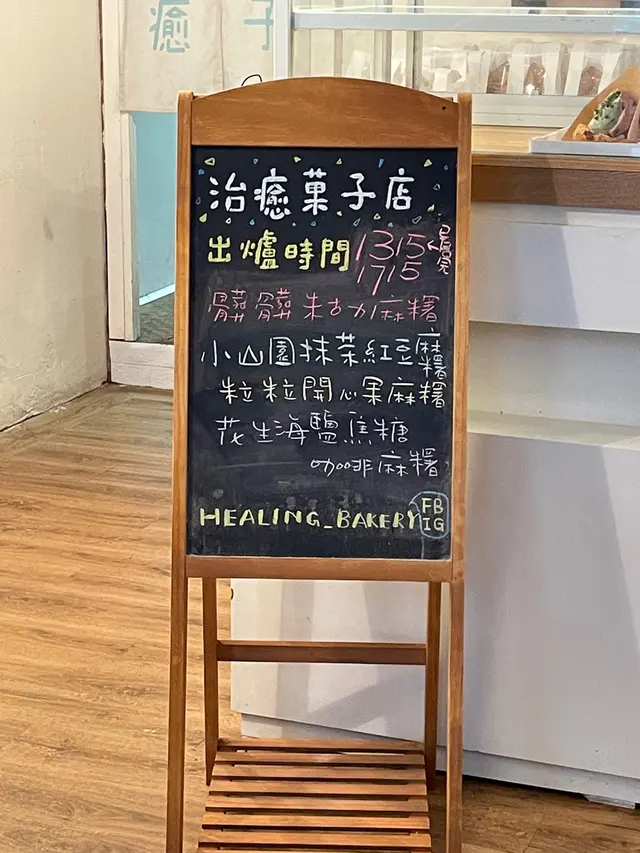 癒子
治癒菓子店
出爐時間 1315
1715
髒髒朱古力麻糬
小山園抹茶紅豆麻糬
粒粒開心果麻糬
花生海鹽焦糖
咖啡麻糬
HEALING_BAKERY FB IG